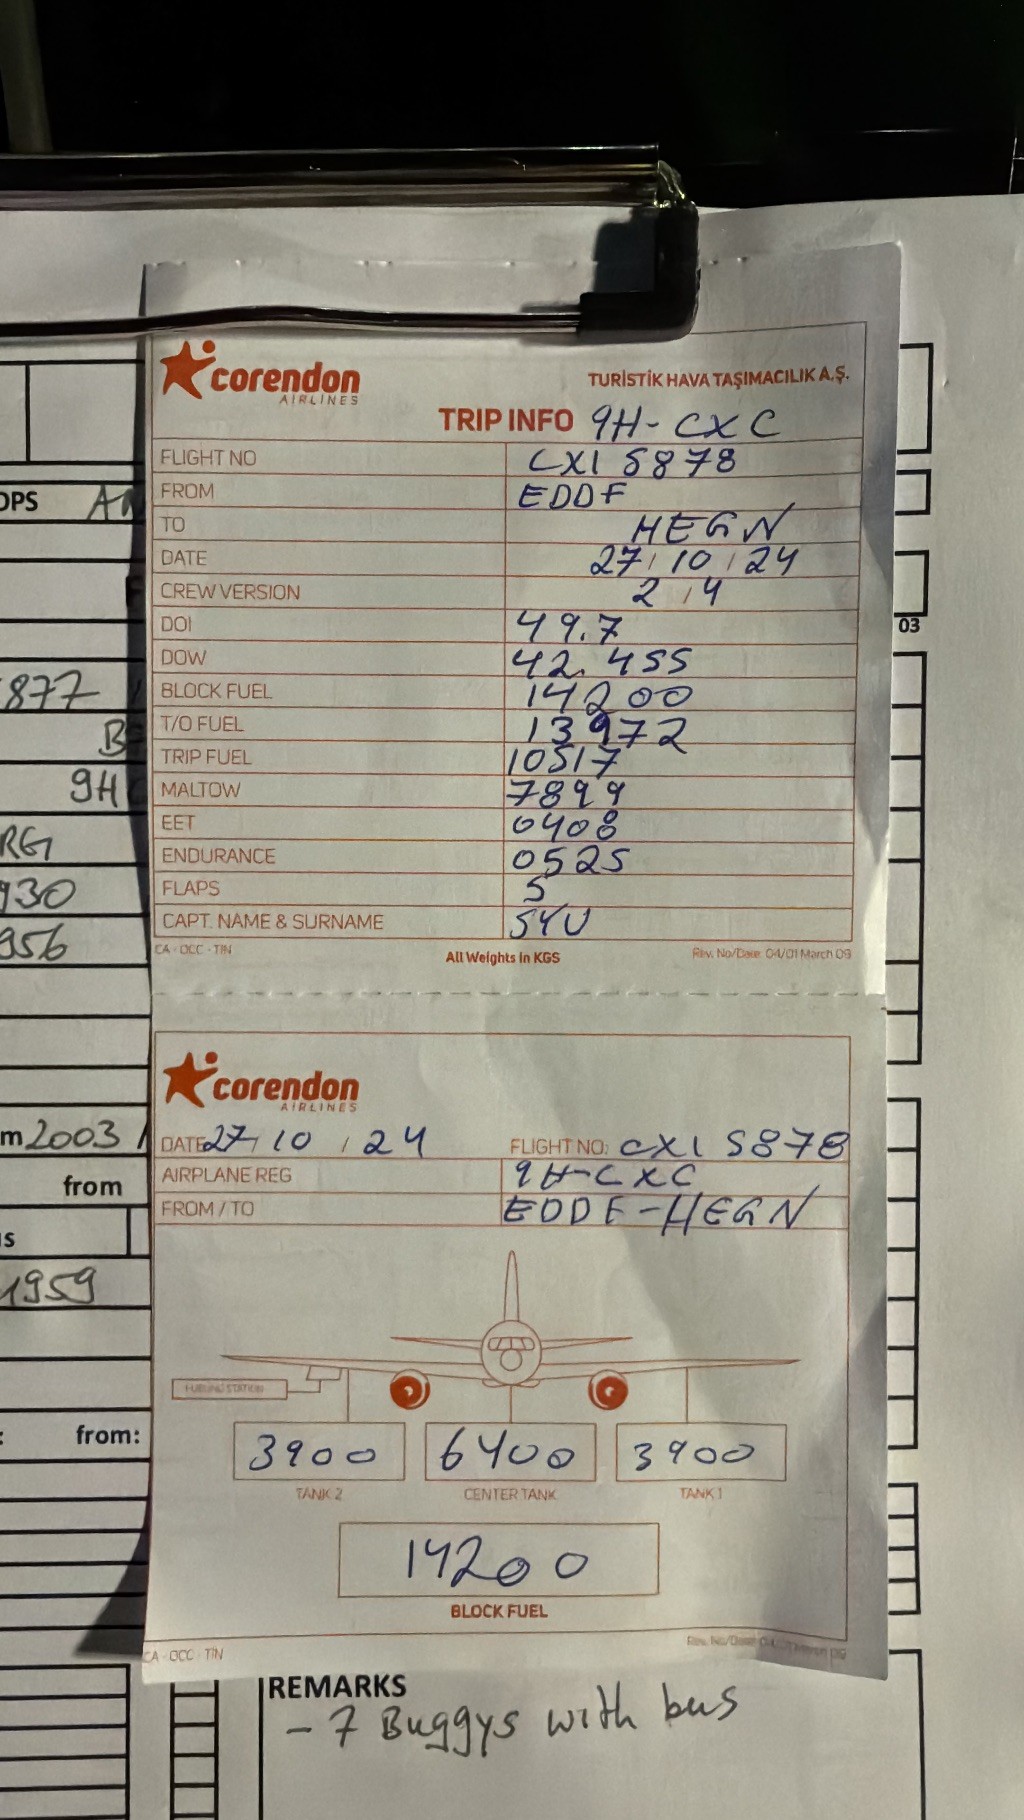 corendon
AIRLINES
TURİSTİK HAVA TAŞIMACILIK A.Ş.
TRIP INFO 9H-CXC
FLIGHT NO CXI 5878
FROM EDDF
TO HEGN
DATE 27/10/24
CREW VERSION 2/4
DOI 49.7
DOW 42.455
BLOCK FUEL 14200
T/O FUEL 13972
TRIP FUEL 10517
MALTOW 7899
EET 0408
ENDURANCE 0525
FLAPS 5
CAPT. NAME & SURNAME SYU
CA - OCC - TIN
All Weights in KGS
Rev. No/Date: 04/01 March 09
corendon
AIRLINES
DATE 27/10/24 FLIGHT NO: CXI 5878
AIRPLANE REG 9H-CXC
FROM / TO EDDF-HEGN
FUELING STATION
3900 6400 3900
TANK 2 CENTER TANK TANK 1
14200
BLOCK FUEL
CA - OCC - TIN
Rev. No/Date: March 09
OPS
03
877
B
9H
RG
930
956
m 2003
from
1959
from:
REMARKS
- 7 Buggys with bus